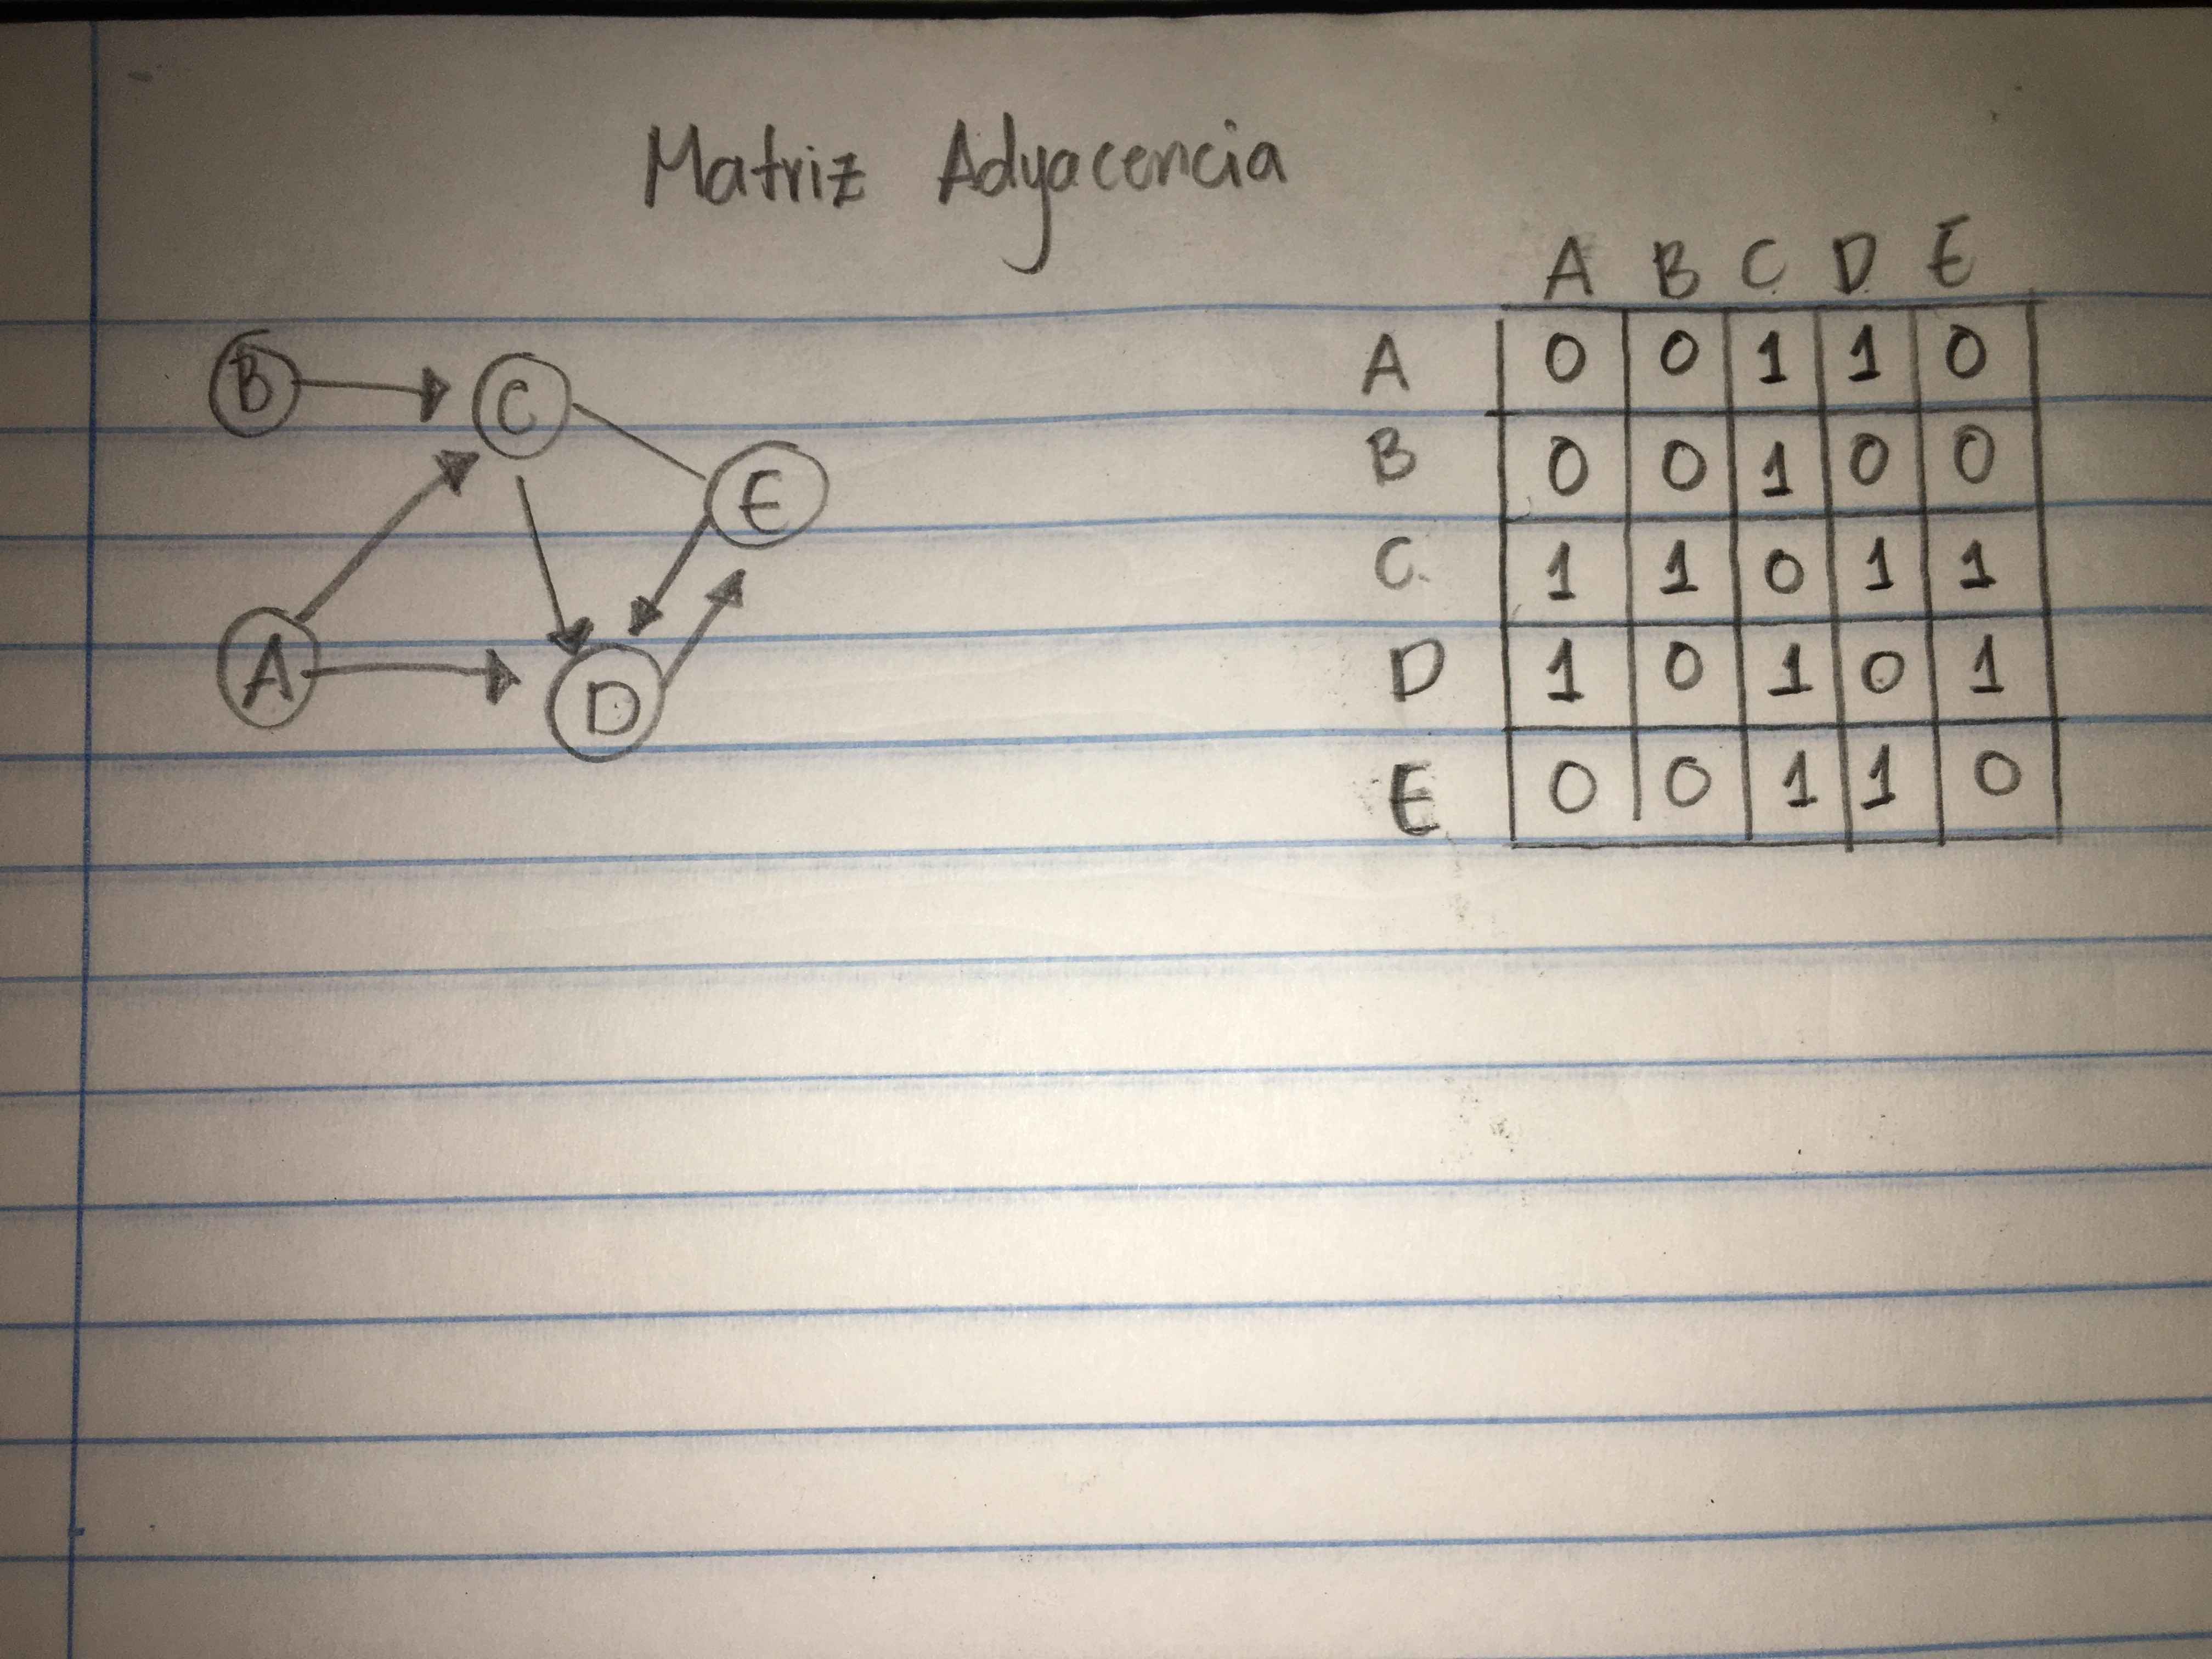 Matriz Adyacencia
B C
E
A D
A B C D E
A 0 0 1 1 0
B 0 0 1 0 0
C 1 1 0 1 1
D 1 0 1 0 1
E 0 0 1 1 0